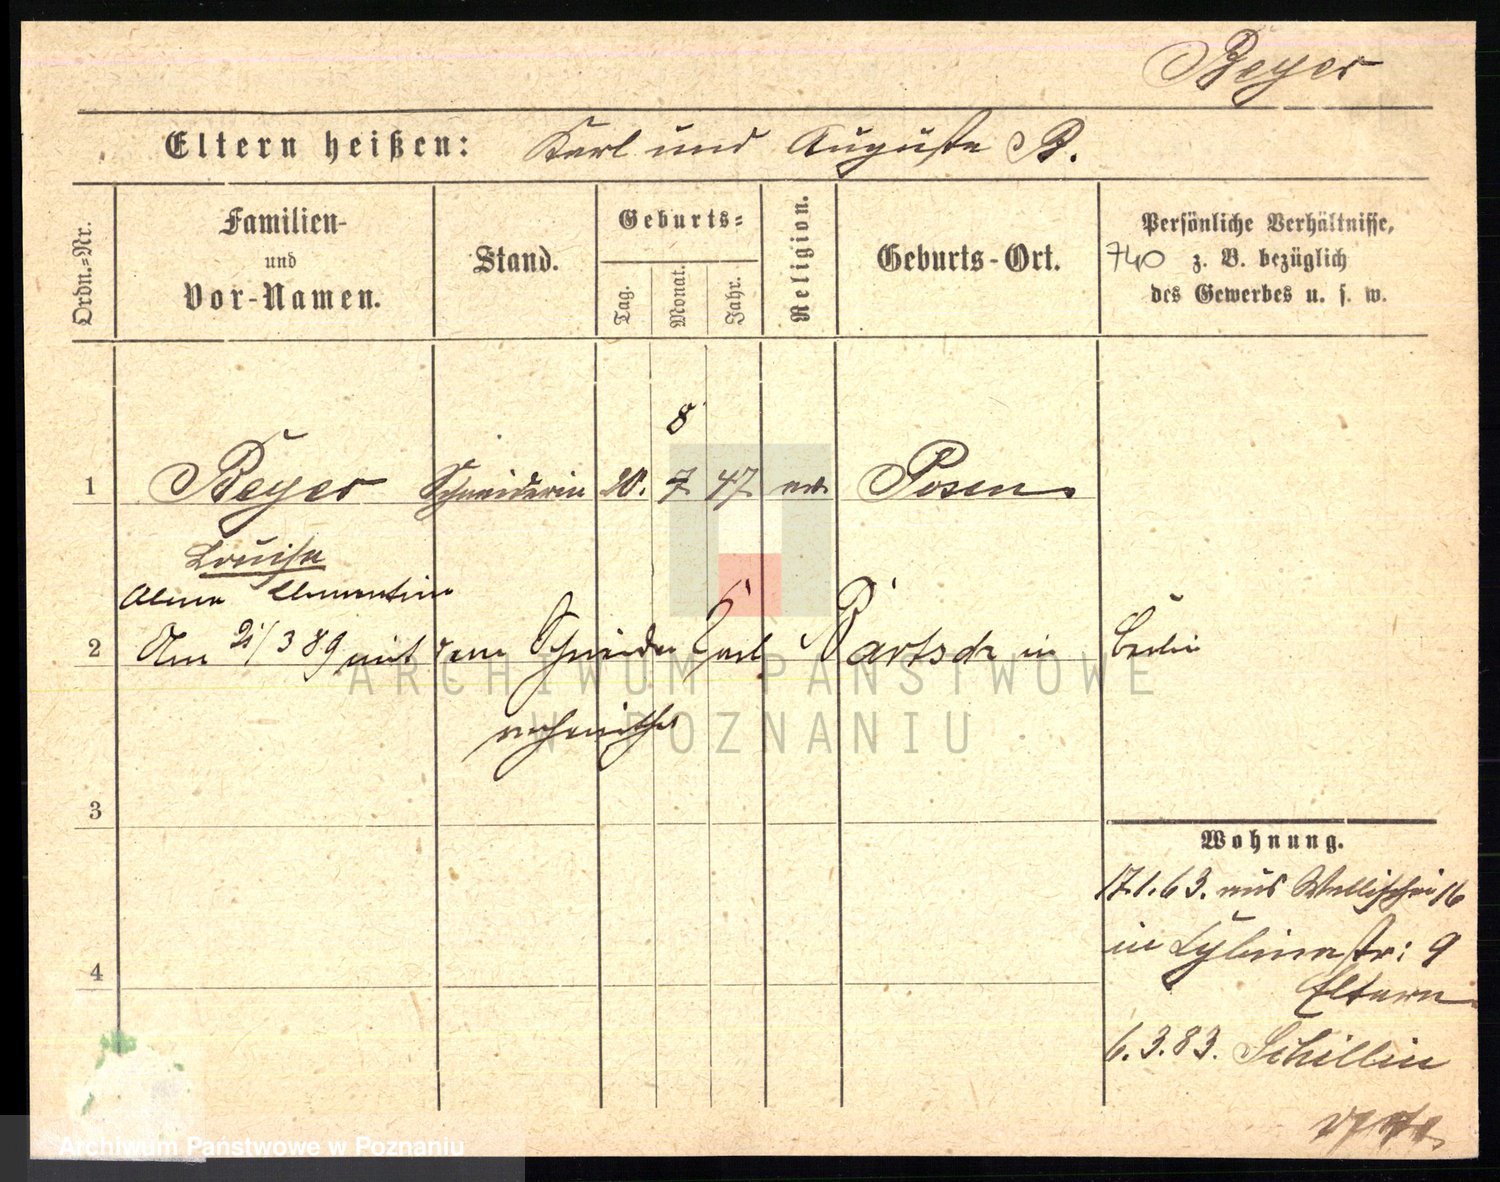 Beyer
Eltern heißen: Karl und Auguste B.
Ordn.-Nr.
Familien- und Vor-Namen.
Stand.
Geburts-
Tag.
Monat.
Jahr.
Religion.
Geburts-Ort.
Persönliche Verhältnisse,
740 z. B. bezüglich
des Gewerbes u. s. w.
8
1 Beyer Schneiderin 20. 7 47 ev. Posen
Louise
Alma Clementine
2 Am 21/3 89 mit dem Schneider Karl Bartsch in Berlin
verheirathet
3
4
Wohnung.
17.1.63. aus Wallischei 16
in Lybinastr: 9
Eltern
6.3.83. Schilling
ARCHIWUM PAŃSTWOWE
W POZNANIU
Archiwum Państwowe w Poznaniu